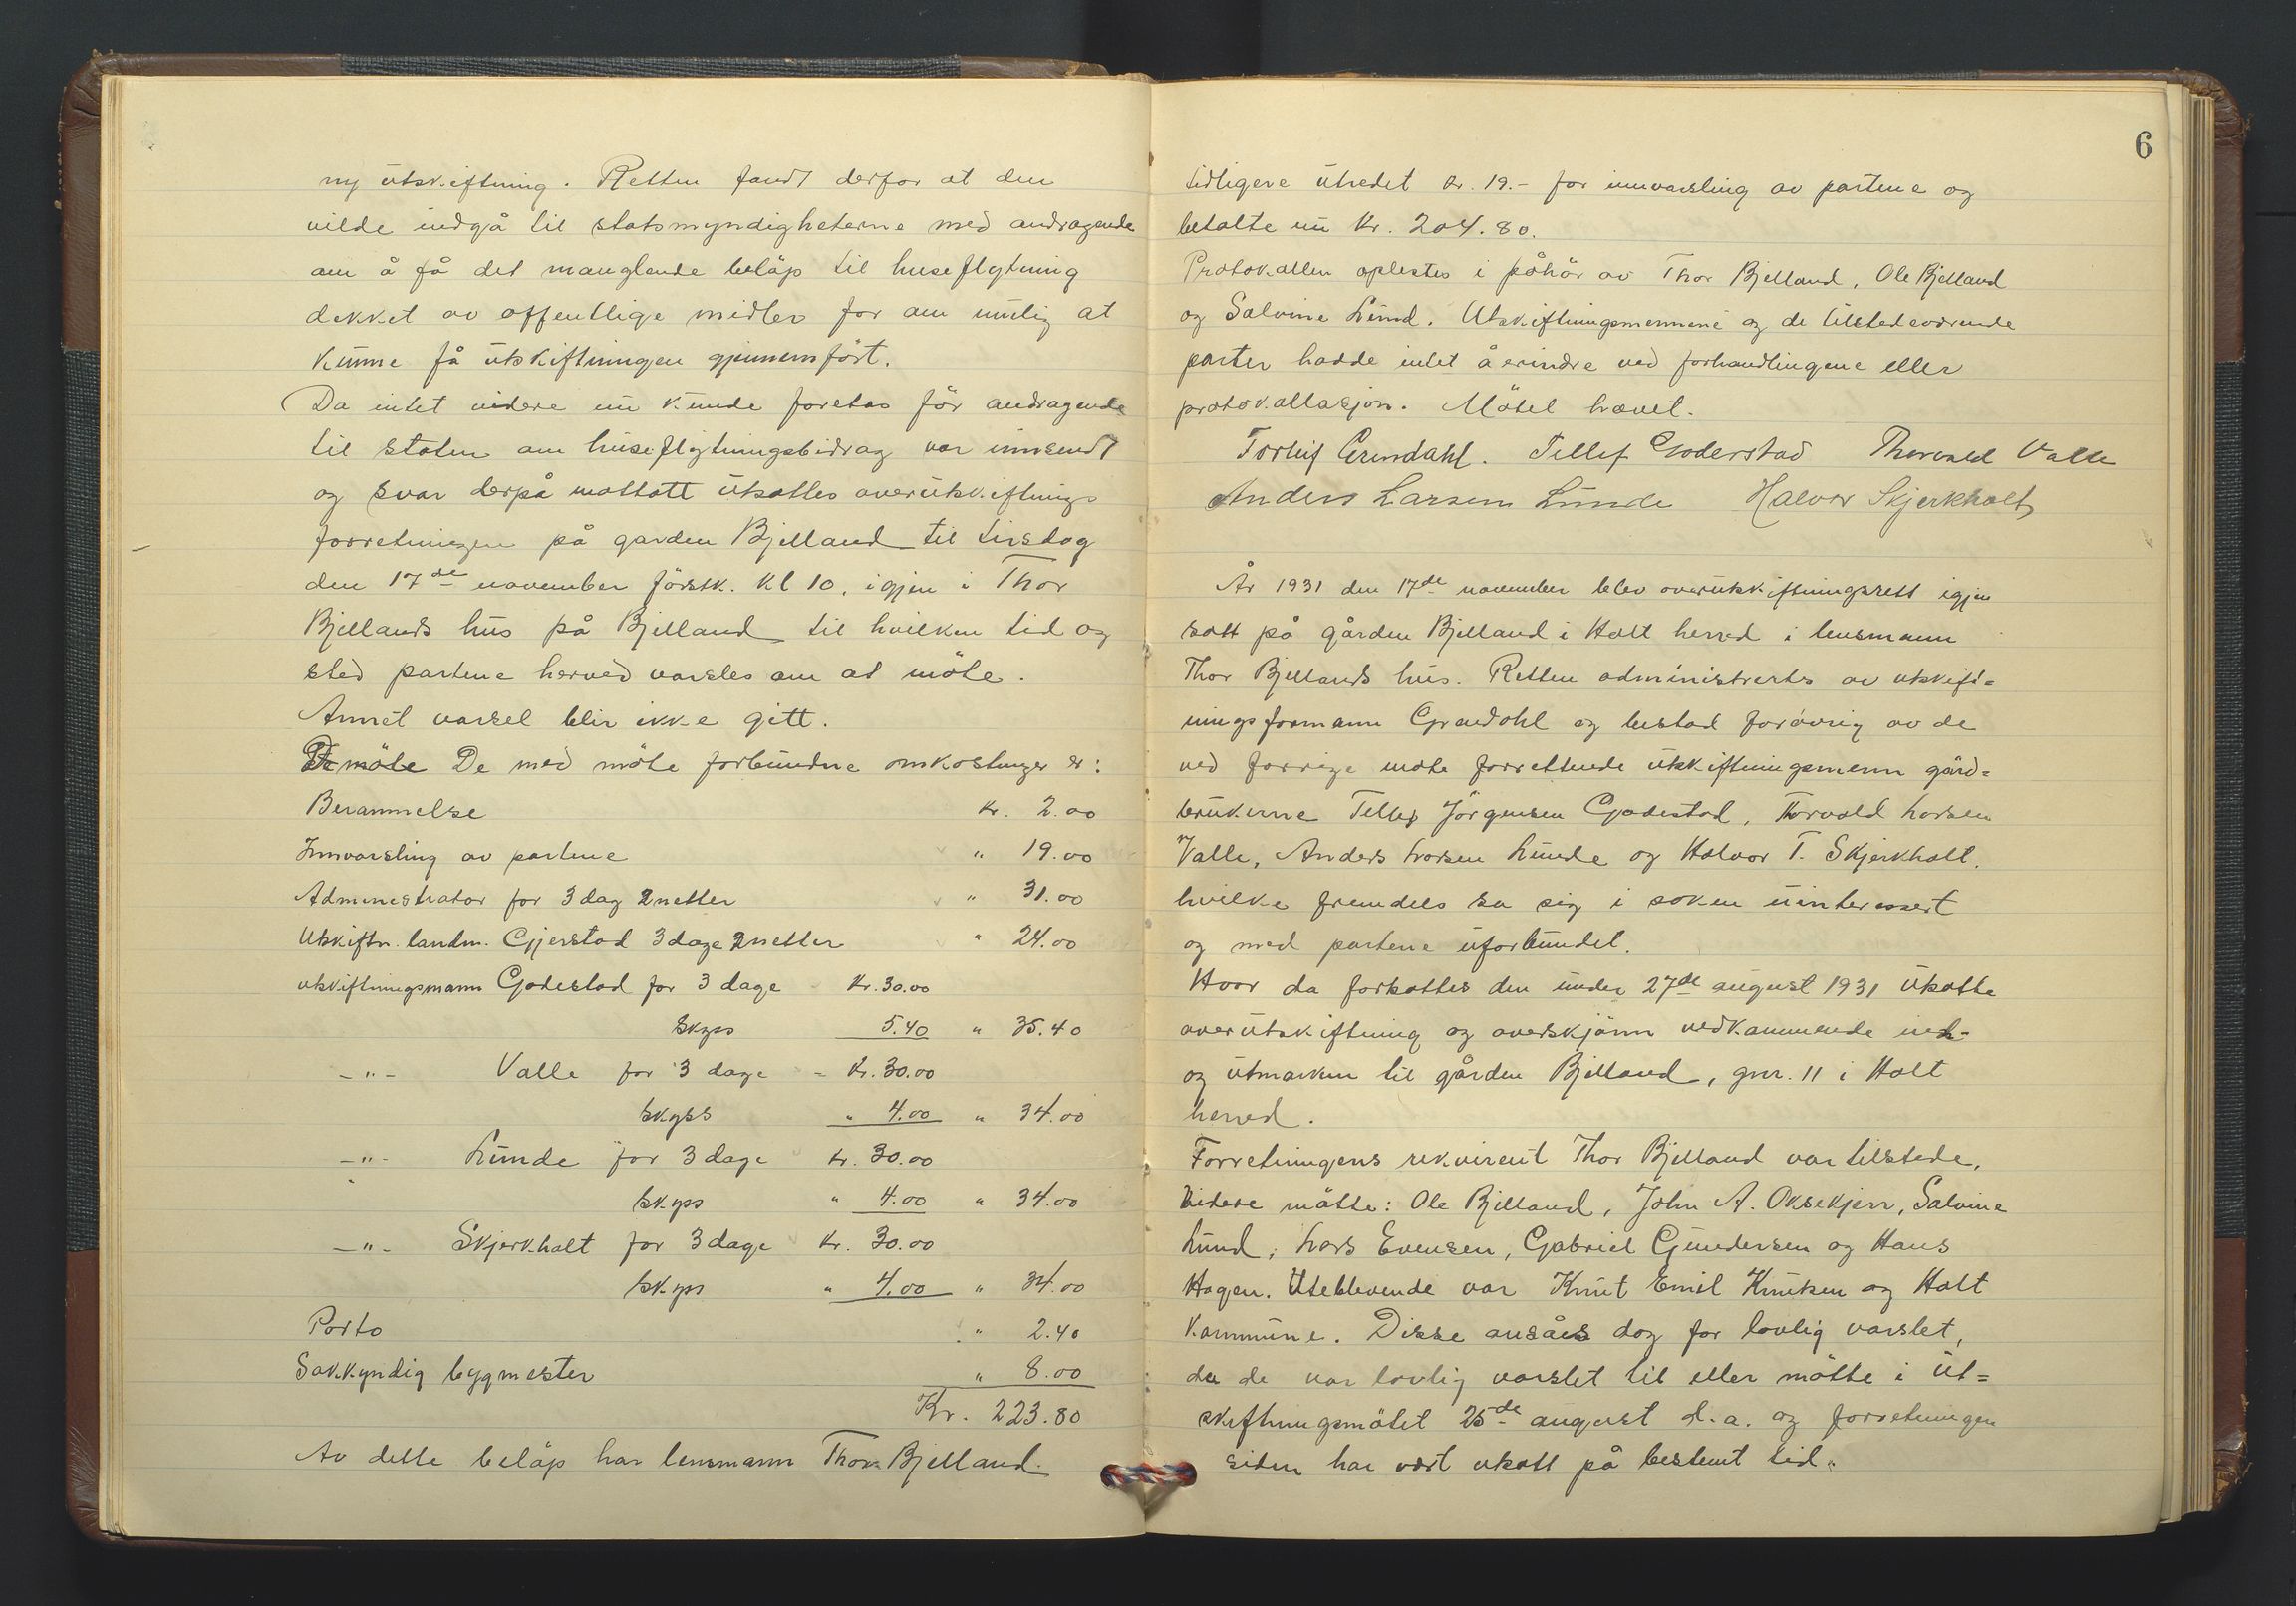 ny utskiftning. Retten fandt derfor at den
vilde indgå til statsmyndigheterne med andragende
om å få det manglende beløp til huseflytning
dekket av offentlige midler for om mulig at
kunne få utskiftningen gjennemfört.
Da intet videre nu kunde foretas för andragende
til staten om huseflytningsbidrag var innsendt
og svar derpå mottatt utsattes overutskiftnings
forretningen på garden Bjelland til tirsdag
den 17de november förstk. kl 10, igjen i Thor
Bjellands hus på Bjelland til hvilken tid og
sted partene herved varsles om at möte.
Annet varsel blir ikke gitt.
De med möte forbundne omkostninger er:
Berammelse Kr. 2.00
Innvarsling av partene " 19.00
Administrator for 3 dag 2 netter " 31.00
Utskiftn. landm. Gjerstad 3 dage 2 netter " 24.00
utskiftningsmann Godestad for 3 dage Kr. 30.00
skyss 5.40 " 35.40
-"- Valle for 3 dage - Kr. 30.00
skyss " 4.00 " 34.00
-"- Lunde for 3 dage Kr. 30.00
skyss " 4.00 " 34.00
-"- Skjerkholt for 3 dage Kr. 30.00
skyss " 4.00 " 34.00
Porto " 2.40
Sakkyndig bygmester " 8.00
Kr. 223.80
Av dette beløp har lensmann Thor Bjelland
6
tidligere utredet kr. 19.- for innvarsling av partene og
betalte nu Kr. 204.80.
Protokollen oplestes i påhör av Thor Bjelland, Ole Bjelland
og Salvine Lund. Utskiftningsmennene og de tilstedeværende
parter hadde intet å erindre ved forhandlingene eller
protokollasjon. Mötet hævet.
Torleif Grendahl. Tellef Goderstad Thorvald Valle
Anders Larsen Lunde Halvor Skjerkholt
År 1931 den 17de november blev overutskiftningsrett igjen
satt på gården Bjelland i Holt herred i lensmann
Thor Bjellands hus. Retten administrerts av utskift=
ningsformann Grendahl og bestod forövrig av de
ved forrige möte forrettende utskiftningsmenn gård=
brukerne Tellef Jörgensen Godestad, Torvald Larsen
Valle, Anders Larsen Lunde og Halvor T. Skjerkholt.
hvilke fremdels sa sig i saken uinteressert
og med partene uforbundet.
Hvor da forsattes den under 27de august 1931 utsatte
overutskiftning og overskjönn vedkommende inn-
og utmarken til gården Bjelland, gnr. 11 i Holt
herred.
Forretningens rekvirent Thor Bjelland var tilstede.
Videre mötte: Ole Bjelland, John A. Oksekjerr, Salvine
Lund, Lars Evensen, Gabriel Gundersen og Hans
Hagen. Uteblevende var Knut Emil Knutsen og Holt
kommune. Disse ansåes dog for lovlig varslet,
da de var lovlig varslet til eller mötte i ut=
skiftningsmötet 25de august d.a. og forretningen
siden har vært utsatt på bestemt tid.